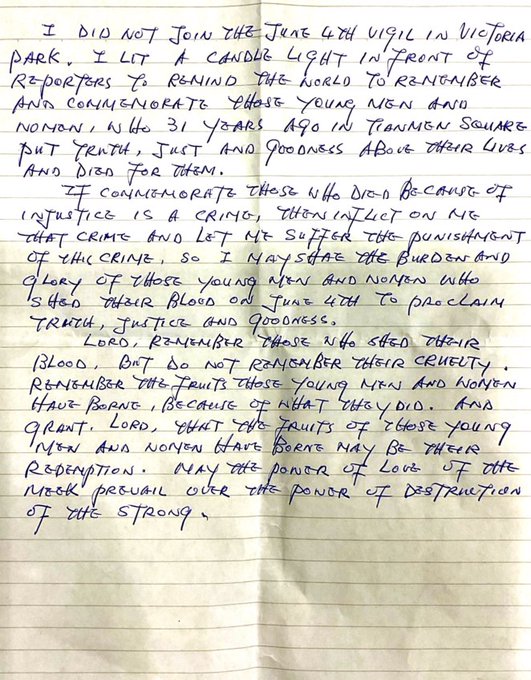 I DID NOT JOIN THE JUNE 4TH VIGIL IN VICTORIA
PARK. I LIT A CANDLE LIGHT IN FRONT OF
REPORTERS TO REMIND THE WORLD TO REMEMBER
AND COMMEMORATE THOSE YOUNG MEN AND
WOMEN, WHO 31 YEARS AGO IN TIANMEN SQUARE
PUT TRUTH, JUST AND GOODNESS ABOVE THEIR LIVES
AND DIED FOR THEM.
IF COMMEMORATE THOSE WHO DIED BECAUSE OF
INJUSTICE IS A CRIME, THEN INFLICT ON ME
THAT CRIME AND LET ME SUFFER THE PUNISHMENT
OF THIS CRIME, SO I MAY SHAE THE BURDEN AND
GLORY OF THOSE YOUNG MEN AND WOMEN WHO
SHED THEIR BLOOD ON JUNE 4TH TO PROCLAIM
TRUTH, JUSTICE AND GOODNESS.
LORD, REMEMBER THOSE WHO SHED THEIR
BLOOD, BUT DO NOT REMEMBER THEIR CRUELTY.
REMEMBER THE FRUITS THOSE YOUNG MEN AND WOMEN
HAVE BORNE, BECAUSE OF WHAT THEY DID. AND
GRANT, LORD, THAT THE FRUITS OF THOSE YOUNG
MEN AND WOMEN HAVE BORNE MAY BE THEIR
REDEMPTION. MAY THE POWER OF LOVE OF THE
MEEK PREVAIL OVER THE POWER OF DESTRUCTION
OF THE STRONG.